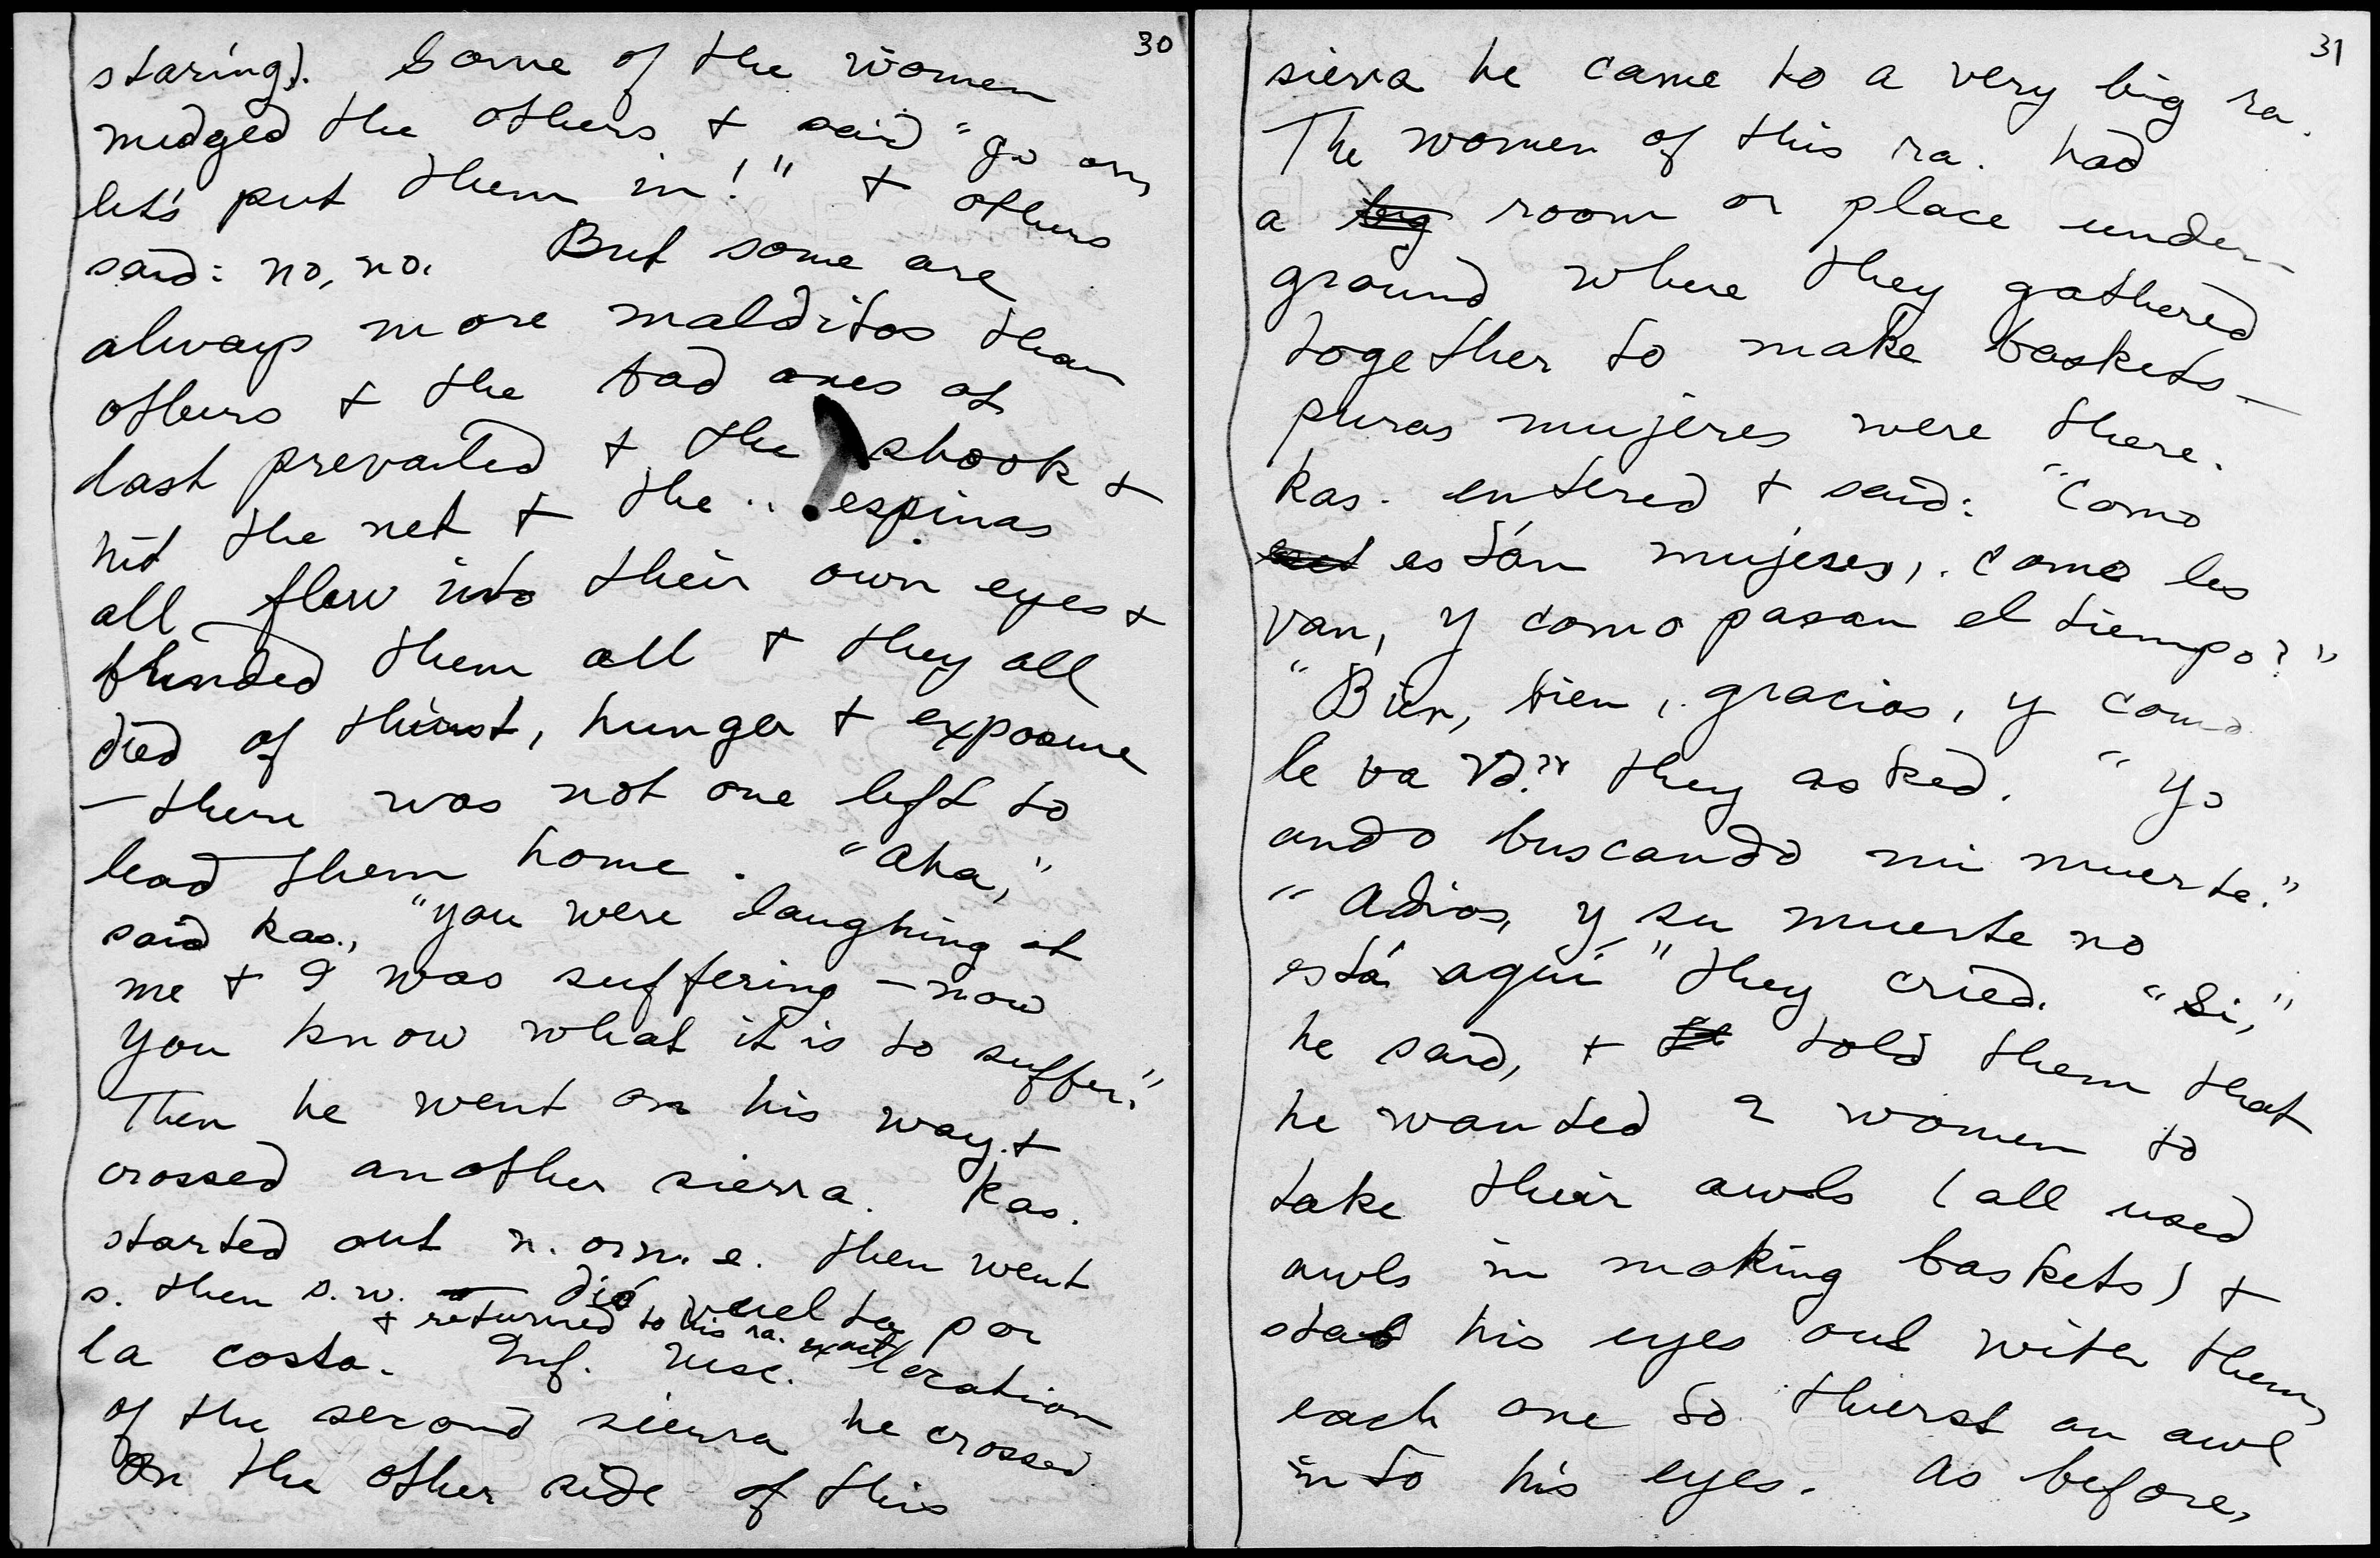 30
staring). Some of the women
nudged the others + said "go on,
let's put them in!" + others
said: no, no. But some are
always more malditos than
others + the bad ones at
last prevailed + the shook +
hit the net + the espinas
all flew into their own eyes +
blinded them all + they all
died of thirst, hunger + exposure
— there was not one left to
lead them home. "Aha,"
said kas., "you were laughing at
me + I was suffering — now
you know what it is to suffer."
Then he went on his way. +
crossed another sierra. Kas.
started out n. or n. e. then went
s. then s.w. dió vuelta por
+ returned to his ra.
la costa. Inf. nesc. exact location
of the second sierra he crossed.
On the other side of this
31
sierra he came to a very big ra.
The women of this ra. had
a big room or place under-
ground where they gathered
together to make baskets —
puras mujeres were there.
Kas. entered + said: "Como
están mujeres, como les
van, y como pasan el tiempo?"
"Bien, bien, gracias, y como
le va Vd?" they asked. "Yo
ando buscando mi muerte."
"Adios, y su muerte no
está aquí" they cried. "Si,"
he said, + told them that
he wanted 2 women to
take their awls (all used
awls in making baskets) +
stab his eyes out with them,
each one to thurst an awl
into his eyes. As before,